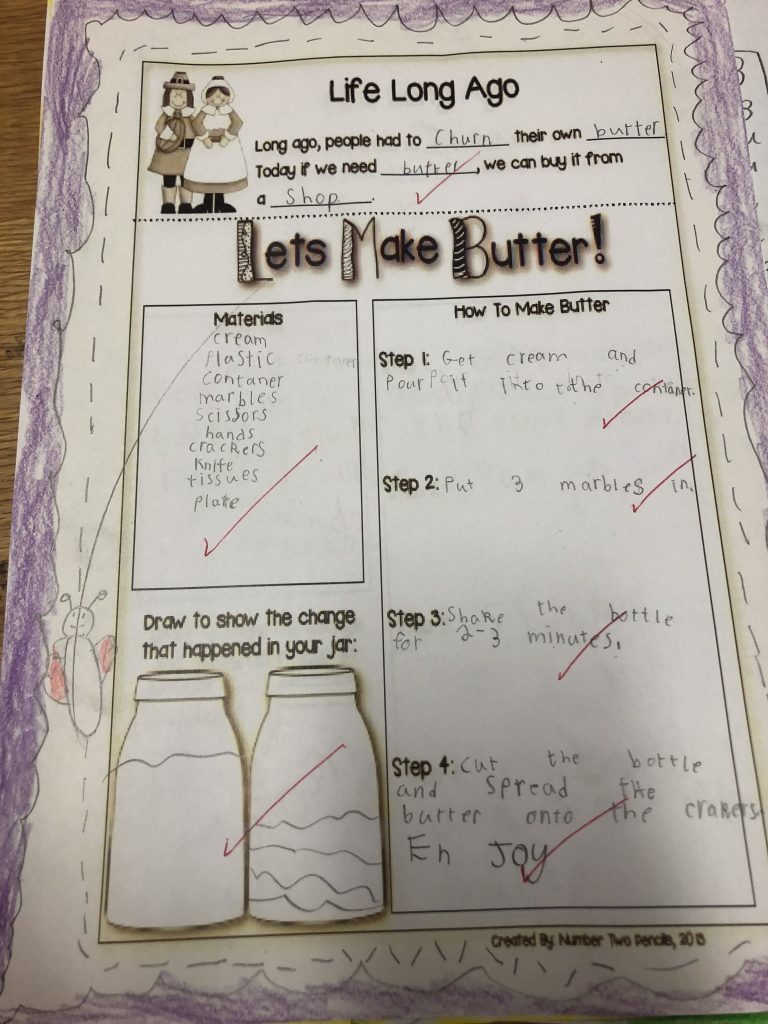 Life Long Ago
Long ago, people had to Churn their own butter
Today if we need butter, we can buy it from
a Shop.
Lets Make Butter!
Materials
cream
plastic contaner
contaner
marbles
scissors
hands
crackers
Knife
tissues
plate
Draw to show the change
that happened in your jar:
How To Make Butter
Step 1: Get cream and
pour it into the contaner.
Step 2: Put 3 marbles in.
Step 3: Shake the bottle
for 2-3 minutes.
Step 4: Cut the bottle
and spread the
butter onto the crakers.
En JOY
Created By: Number Two Pencils, 2013